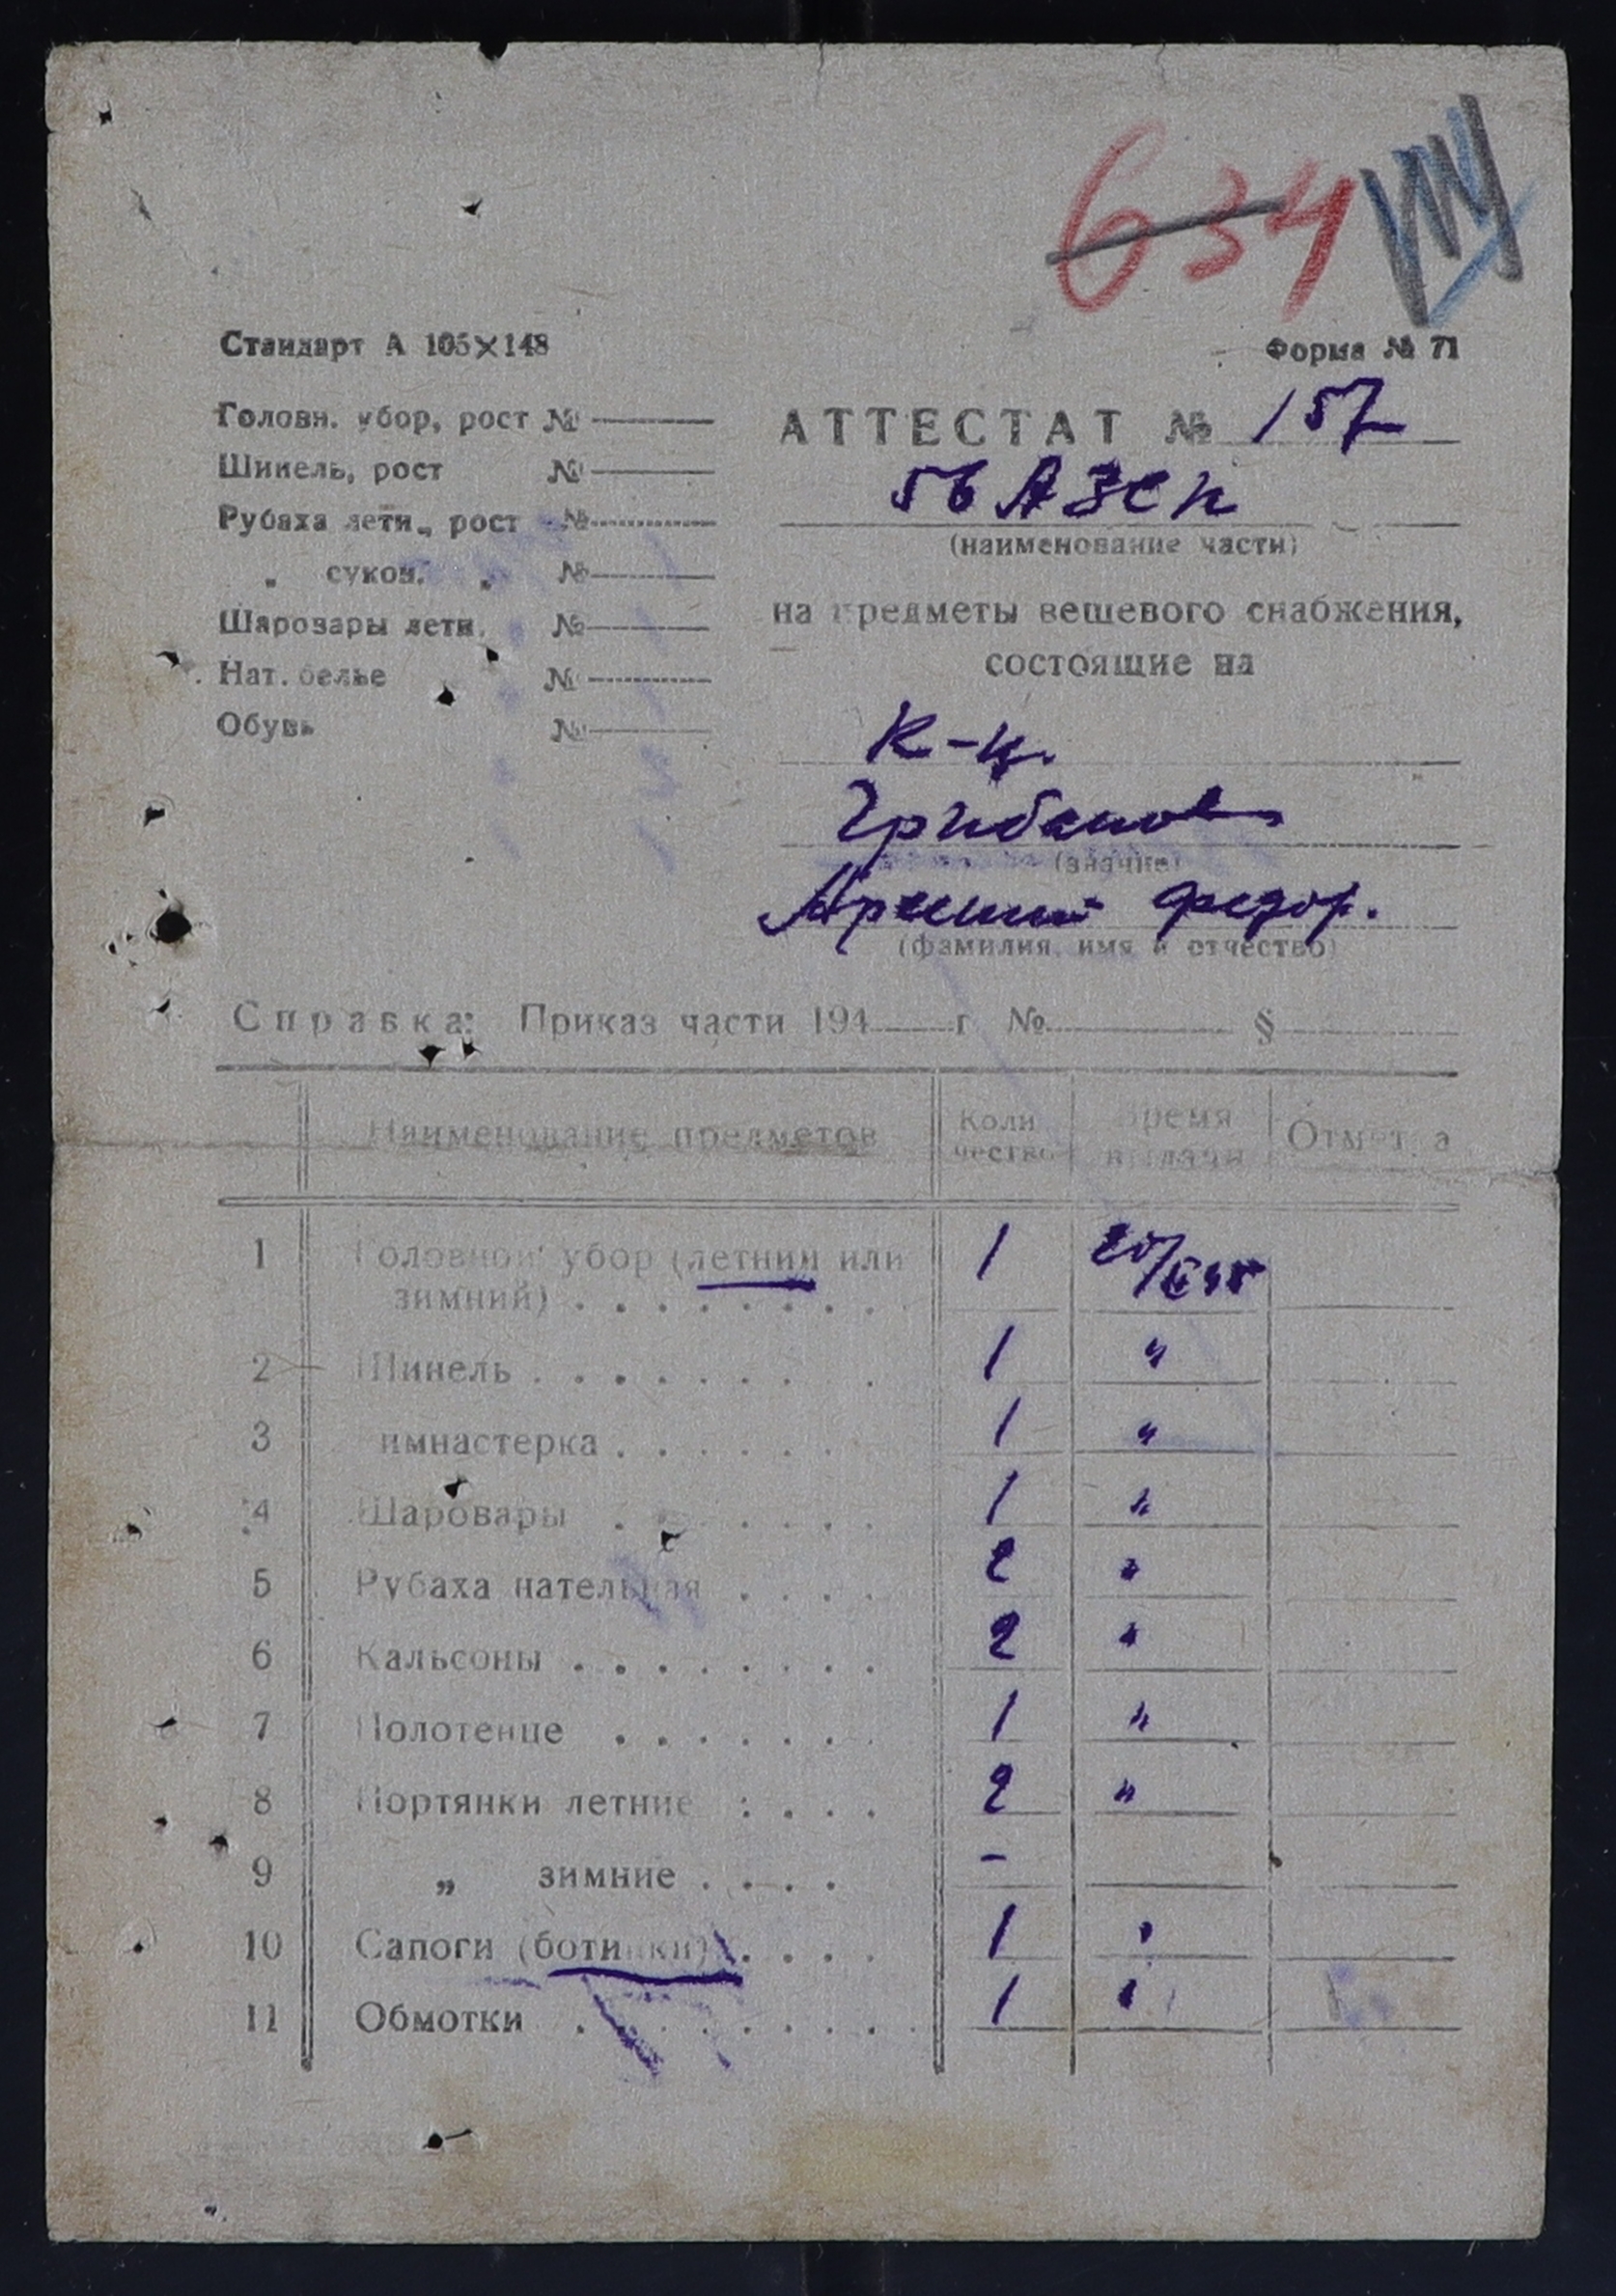 634
Стандарт А 105×148
Форма № 71
Головн. убор, рост №
Шинель, рост №
Рубаха летн., рост №
„ сукон. „ №
Шаровары летн. №
Нат. белье №
Обувь №
АТТЕСТАТ № 157
56 АЗСП
(наименование части)
на предметы вещевого снабжения,
состоящие на
К-ц.
Грибанов
(звание)
Арсений Федор.
(фамилия, имя и отчество)
Справка: Приказ части 194 г. № §
Наименование предметов Количество Время выдачи Отметка
1 Головной убор (летний или зимний) 1
2 Шинель 1 "
3 Гимнастерка 1 "
4 Шаровары 1 "
5 Рубаха нательная 2 "
6 Кальсоны 2 "
7 Полотенце 1 "
8 Портянки летние 2 "
9 „ зимние -
10 Сапоги (ботинки) 1 "
11 Обмотки 1 "